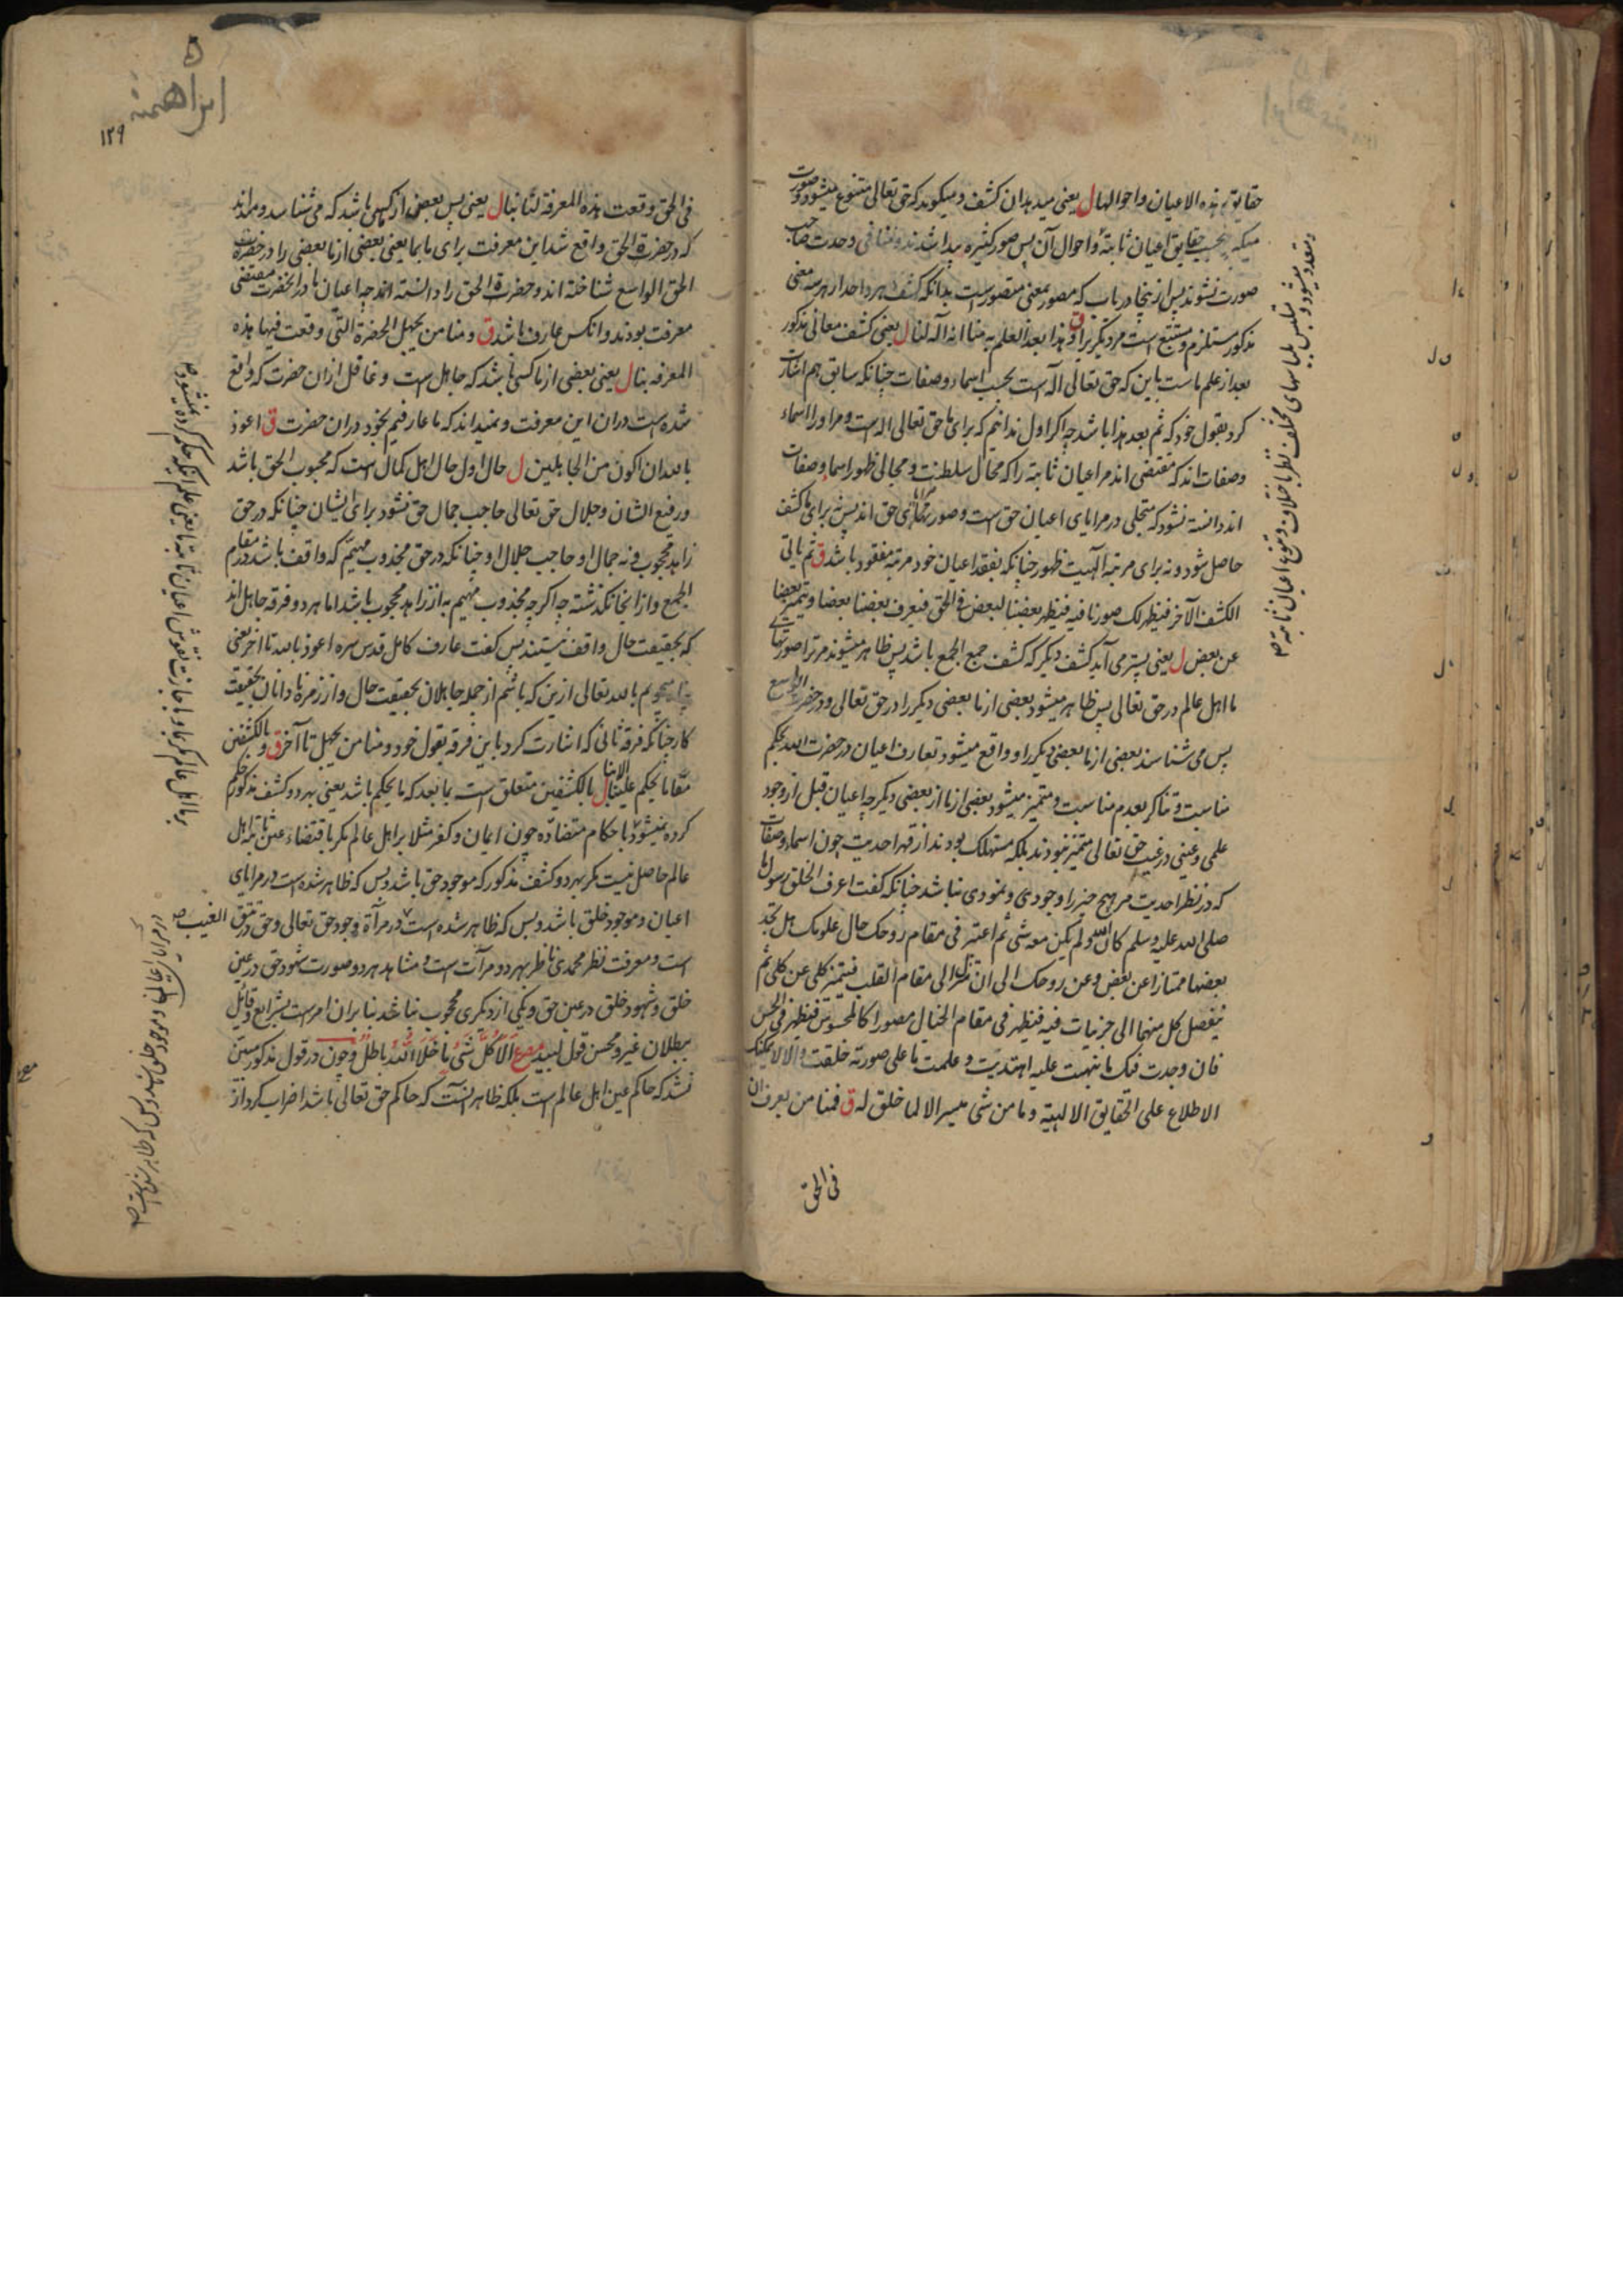 حقایق هذه الاعیان و احوالها ل یعنی میدهد آن کشف و میگوید که حق تعالی متنوع میشود و صورت
میگیرد بحسب حقایق اعیان ثابته و احوال آن پس صور کثیره پیدا شدند و منافی وحدت صاحب
صورت نشوند پس از اینجا دریاب که مصور بمعنی متصور است بدانکه کشف هر واحد از هر سه معنی
مذکور مستلزم و مستتبع است مر دیگر را ق و هذا بعد العلم به منا انه اله لنا ل یعنی کشف معانی مذکور
بعد از علم ماست باین که حق تعالی اله است بحسب اسماء و صفات چنانکه سابق هم اشارت
کرد بقول خود که ثم بعد هذا باشد چه اگر اول ندانیم که برای ما حق تعالی اله است و مر او را اسماء
و صفات اند که مقتضی اند مر اعیان ثابته را که محال سلطنت و مجالی ظهور اسما و صفات
اند دانسته نشود که متجلی در مرایای اعیان حق است و صور مرایای حق اند پس نه برای ما کشف
حاصل شود و نه برای مرتبه الٰهیت ظهور چنانکه بفقد اعیان خود مرتبه مفقود باشد ق ثم یاتی
الکشف الآخر فیظهر لک صورنا فیه فیظهر بعضنا لبعض فی الحق فیعرف بعضنا بعضا و یتمیز بعضنا
عن بعض ل یعنی پستر می آید کشف دیگر که کشف جمع الجمع باشد پس ظاهر میشوند مر ترا صورتهای
ما اهل عالم در حق تعالی پس ظاهر میشود بعضی از ما بعضی دیگر را در حق تعالی و در حضرت الواسع
پس می شناسند بعضی از ما بعضی دیگر را و واقع میشود تعارف اعیان در حضرت الله بحکم
مناسبت و تناکر بعدم مناسبت و متمیز میشود بعضی از ما از بعضی دیگر چه اعیان قبل از وجود
علمی و عینی در غیب حق تعالی متمیز نبودند بلکه مستهلک بودند از قهر احدیت چون اسماء و صفات
که در نظر احدیت مر هیچ چیز را وجودی و نمودی نباشد چنانکه گفت اعرف الخلق رسول ما
صلی الله علیه وسلم کان الله و لم یکن معه شی ثم اعتبر فی مقام روحک حال علومک هل تجد
بعضها ممتازا عن بعض و عن روحک الی ان تنزل الی مقام القلب فیتمیز کلی عن کلی ثم
یتفصل کل منهما الی جزئیات فیه فیظهر فی مقام الخیال مصورا کالمحسوس فیظهر فی الحس
فان وجدت فیک ما نبهت علیه اهتدیت و علمت ما علی صورته خلقت و الا لا یمکنک
الاطلاع علی الحقایق الالهیة و ما من شی میسر الا لما خلق له ق فمنا من یعرف ان
فی الحق
و متعدد میشود و بس
متلبس بلباسهای مختلف نظر باختلاف و تنوع اعیان ثابته ۱۲
ابراهیمیة
۱۲۹
فی الحق وقعت هذه المعرفة لنا بنا ل یعنی پس بعضی از ما کسی باشد که می شناسد و میداند
که در حضرت الحق واقع شد این معرفت برای ما بما یعنی بعضی از ما بعضی را در حضرت
الحق الواسع شناخته اند و حضرت الحق را دانسته اند چه اعیان ما در انحضرت مقتضی
معرفت بودند و آنکس عارف باشد ق و منا من یجهل الحضرة التی وقعت فیها هذه
المعرفة بنا ل یعنی بعضی از ما کسی باشد که جاهل است و غافل ازان حضرت که واقع
شده است دران این معرفت و نمیداند که ما عارفیم بخود دران حضرت ق اعوذ
بالله ان اکون من الجاهلین ل حال اول حال اهل کمال است که محبوب الحق باشد
و رفیع الشان و جلال حق تعالی حاجب جمال حق نشود برای ایشان چنانکه در حق
زاهد محجوب و نه جمال او حاجب جلال او چنانکه در حق مجذوب مهیم که واقف باشد در مقام
الجمع و از انجا نگذشته چه اگرچه مجذوب مهیم به از زاهد محجوب باشد اما هر دو فرقه جاهل اند
که بحقیقت حال واقف نیستند پس گفت عارف کامل قدس سره اعوذ بالله تا آخر یعنی
پناه میجویم بالله تعالی ازین که باشم از جمله جاهلان بحقیقت حال و از زمره نادانان بحقیقت
کار چنانکه فرقه ثانی که اشارت کرد باین فرقه بقول خود و منا من یجهل تا آخر ق و بالکشفین
معا ما یحکم علینا الا بنا ل بالکشفین متعلق است بما بعد که ما یحکم باشد یعنی بهر دو کشف مذکور حکم
کرده نمیشود با حکام متضاده چون ایمان و کفر مثلا بر اهل عالم مگر باقتضاء عین ثابته اهل
عالم حاصل نیست مگر بهر دو کشف مذکور که موجود حق باشد و بس که ظاهر شده است در مرایای
اعیان و موجود خلق باشد و بس که ظاهر شده است در مرآة وجود حق تعالی و حق در تتق الغیب
است و معرفت نظر محمدی ناظر بهر دو مرآت است و مشاهد هر دو صورت شهود حق در عین
خلق و شهود خلق در عین حق و یکی از دیگری محجوب نباشد بنا بران امر است بشرایع و قایل
ببطلان غیر و محسن قول لبید مصرع اَلَا کُلُّ شَیْءٍ مَا خَلَا اللّٰهَ بَاطِلُ و چون در قول مذکور مبین
نشد که حاکم عین اهل عالم است بلکه ظاهر آنست که حاکم حق تعالی باشد اضراب کرد از